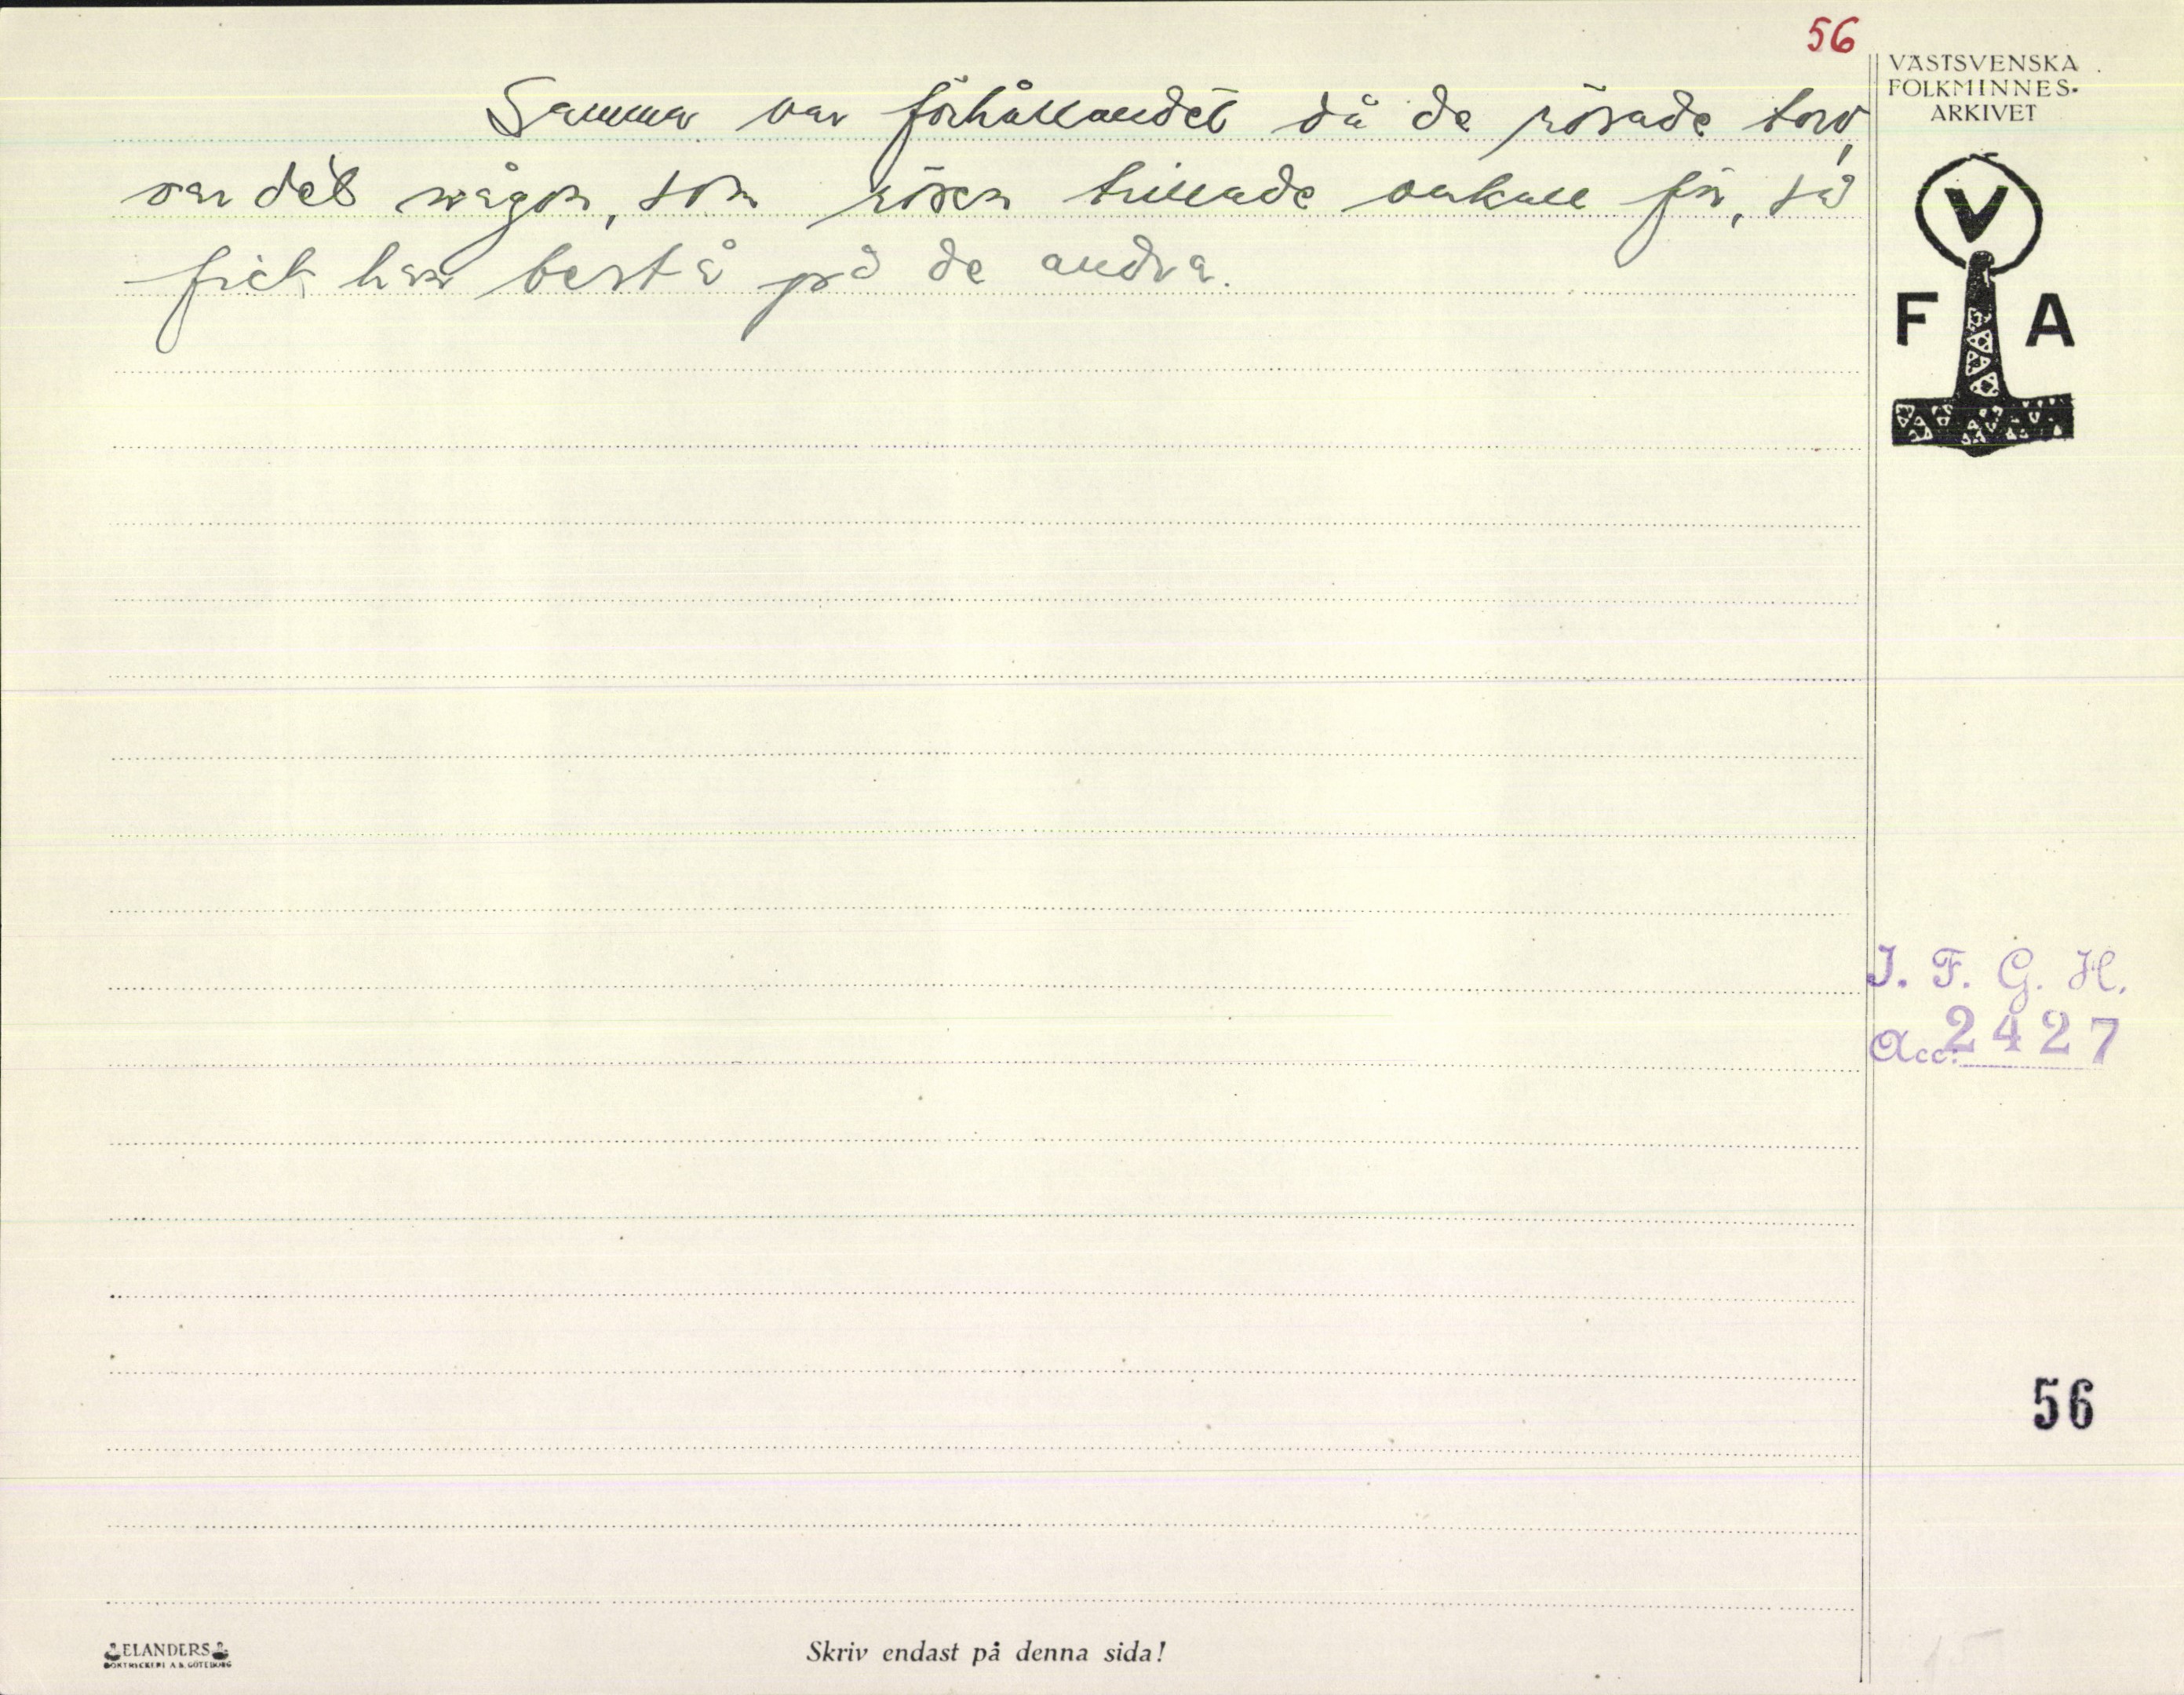 56
VÄSTSVENSKA
FOLKMINNES-
ARKIVET
Samma var förhållandet då de rösade torv,
var det någon, som rösen trillade omkull för, så
fick han bestå på de andra.
V
F A
I. F. G. H.
Acc: 2427
56
ELANDERS
BOKTRYCKERI A.B. GÖTEBORG
Skriv endast på denna sida!